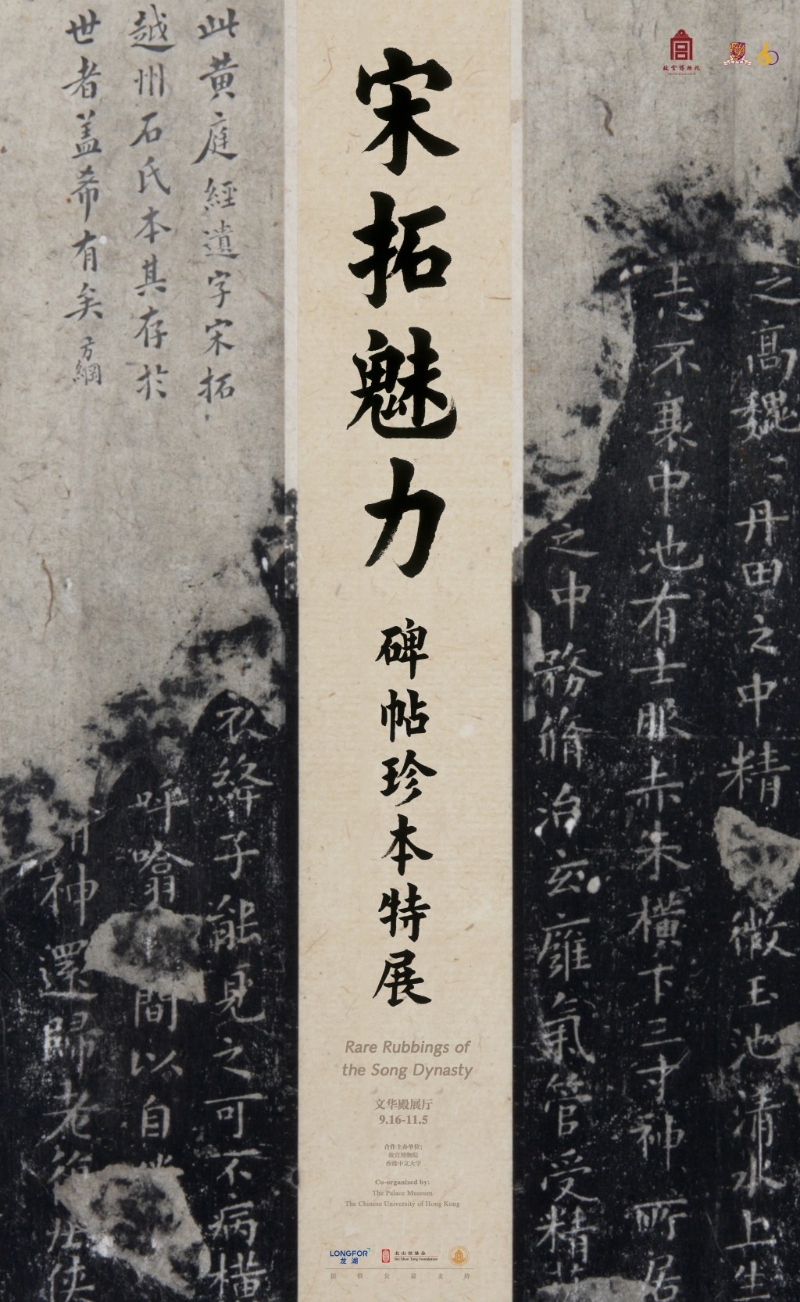 故宫博物院
宋拓魅力
碑帖珍本特展
此黄庭經遺字宋拓
越州石氏本其存於
世者盖希有矣 方綱
之高魏〻丹田之中精微玉池清水上生
志不衰中池有士服赤朱横下三寸神所居
之中務脩治玄廱氣管受精
衣絳子能見之可不病横
呼噏間以自
神還歸老
Rare Rubbings of
the Song Dynasty
文华殿展厅
9.16-11.5
合作主办单位:
故宫博物院
香港中文大学
Co-organized by:
The Palace Museum
The Chinese University of Hong Kong
LONGFOR
龙湖